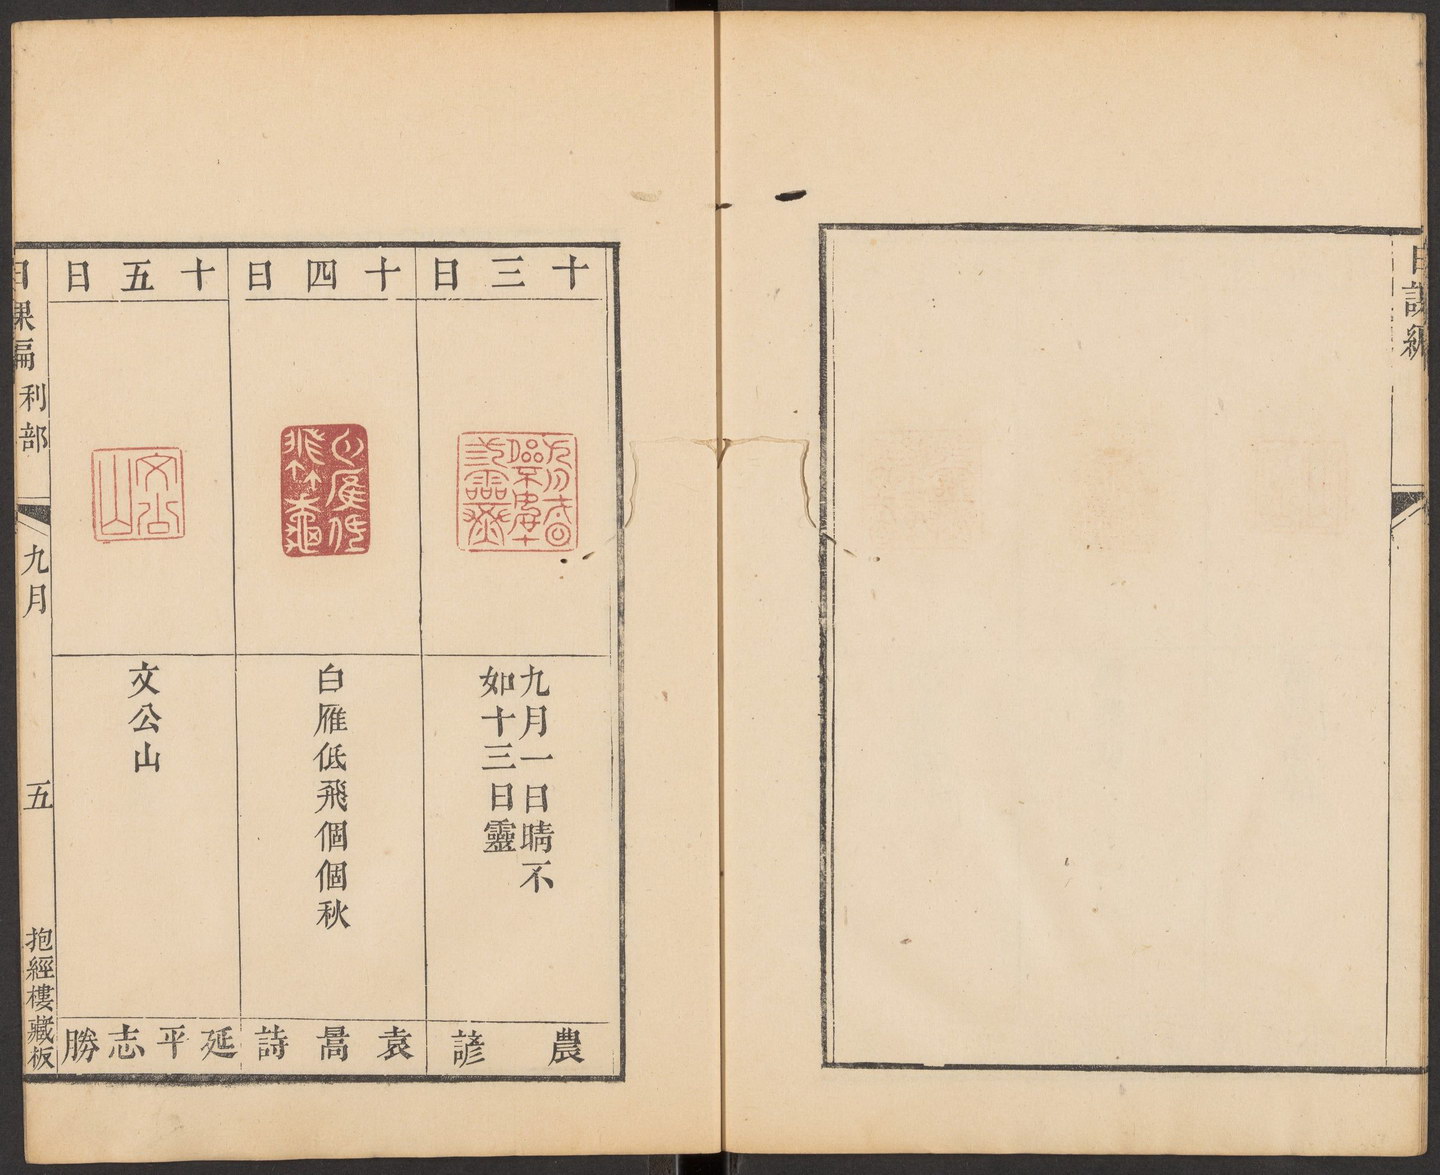 日課編
十三日
九月一日晴不
如十三日靈
農諺
十四日
白雁低飛個個秋
袁暠詩
十五日
文公山
延平志勝
日課編 利部
九月
五
抱經樓藏板